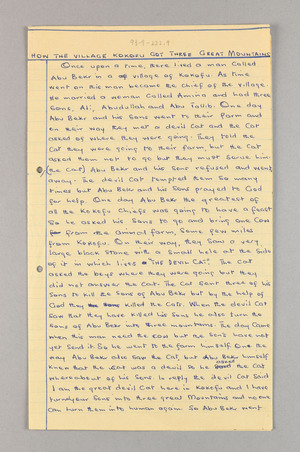 98-9-222.1
HOW THE VILLAGE KOKOFU GOT THREE GREAT MOUNTAINS
Once upon a time, there lived a man called
Abu Bekr in a village of Kokofu. As time
went on this man became the chief of the village.
He married a woman Amina and had three
sons, Ali, Abudullah and Abu Talib. One day
Abu Bekr and his Sons went to their farm and
on their way they met a devil Cat and the Cat
asked of where they were going. They told the
Cat they were going to their farm, but the Cat
asked them not to go but they must serve him
(the Cat) Abu Bekr and his Sons refused and went
away. The devil Cat tempted them so many
times but Abu Bekr and his Sons prayed to God
for help. One day Abu Bekr the greatest of
all the Kokofu Chiefs was going to have a feast
So he asked his Sons to go and bring one Cow
from the animal farm, Some few miles
from Kokofu. On their way, they saw a very
large black stone with a small hole at the side
of it in which lives "THE DEVIL CAT". The Cat
asked the boys where they were going but they
did not answer the Cat. The Cat sent three of his
Sons to kill the Sons of Abu Bekr but by the help of
God they killed the Cats. When the devil Cat
saw that they have killed his Sons he also turn the
sons of Abu Bekr into three mountains. The day came
when this man need the cow but the Sons have not
yet send it. So he went to the farm himself. On the
way Abu Bekr also saw the Cat, but Abu Bekr himself
knew that the cat was a devil so he asked the Cat
whereabout of his Sons. In reply the devil Cat said
I am the great devil Cat here in Kokofu and I have
turned your Sons into three great Mountains and no one
can turn them into human again. So Abu Bekr went